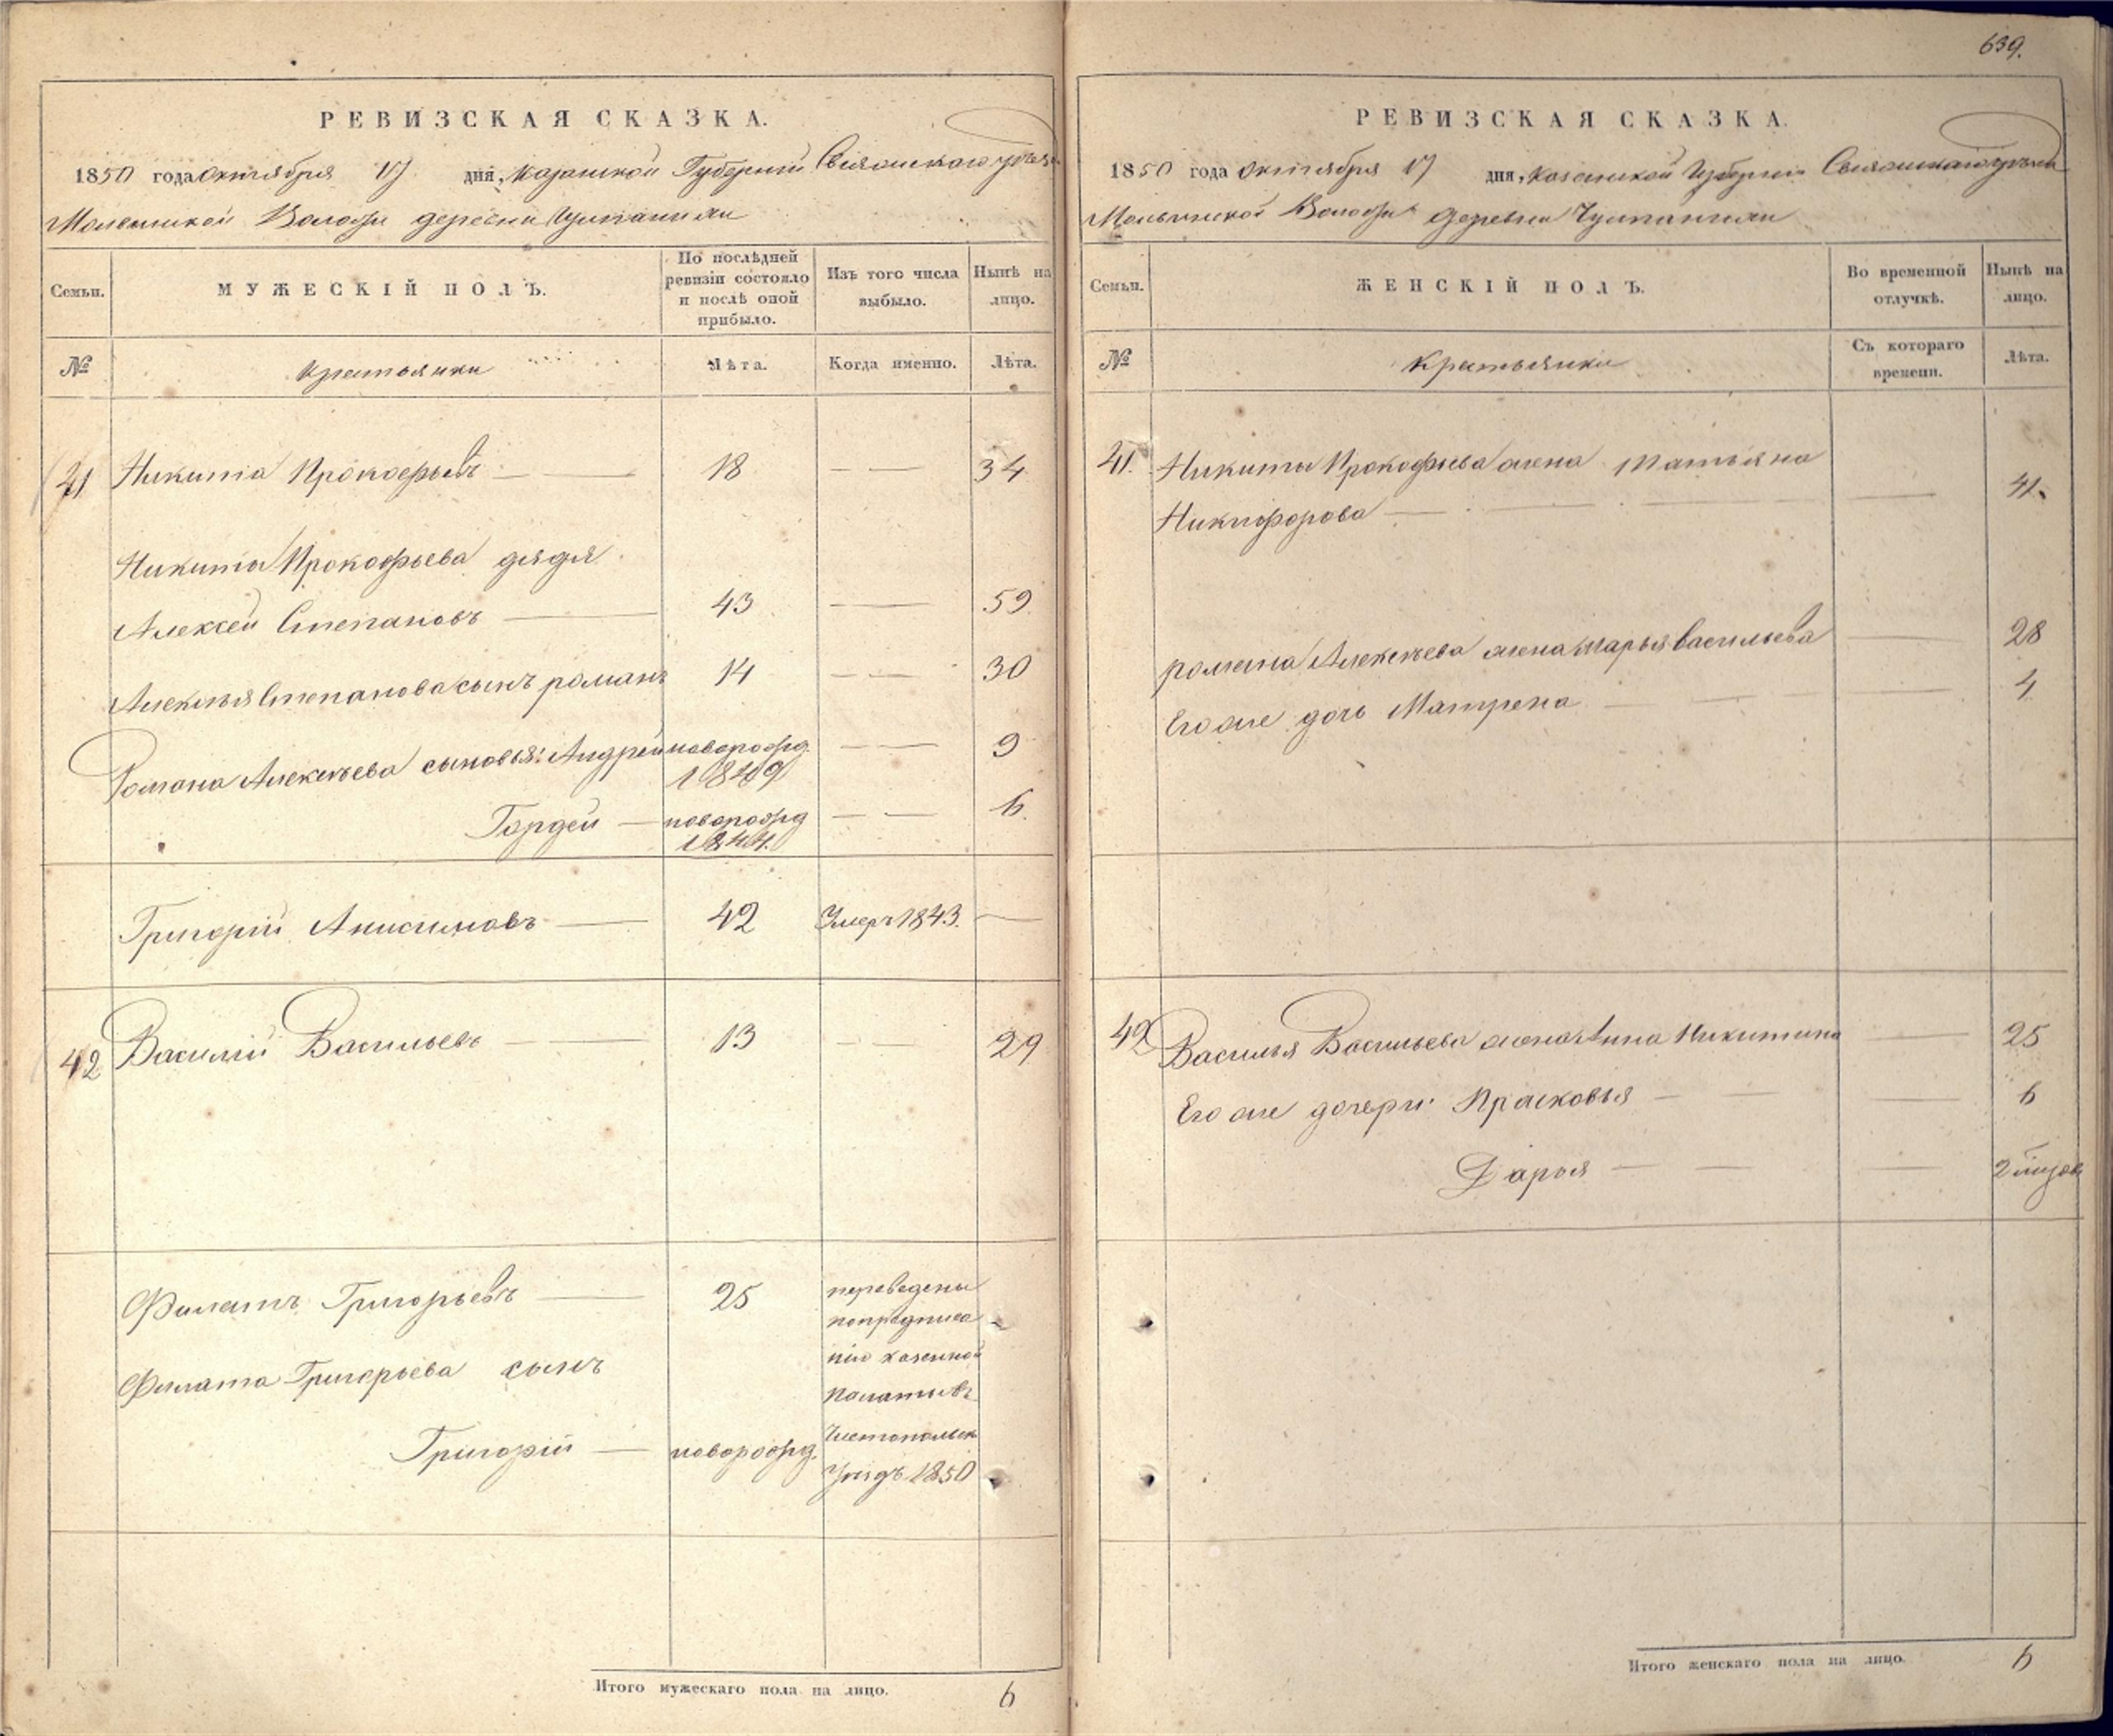 639.
РЕВИЗСКАЯ СКАЗКА.
1850 года октября 17 дня, Казанской Губерніи Свіяжскаго уезда
Волости деревни
МУЖЕСКІЙ ПОЛЪ.
Семьи.
По послѣдней ревизіи состояло и послѣ оной прибыло.
Изъ того числа выбыло.
Нынѣ на лицо.
№
крестьянки
Лѣта.
Когда именно.
Лѣта.
41 Никита Прокофьевъ 18 34
Никиты Прокофьева дядя
Алексей Степановъ 43 59
Алексѣя Степанова сынъ романъ 14 30
Романа Алексѣева сыновья: Андрей новорожд. 9
18409
Гордей новорожд 6.
1844.
Григорій Анисимовъ 42 Умеръ 1843.
42 Василій Васильевъ 13 29
Филатъ Григорьевъ 25 переведены
попредписа
Филата Григорьева сынъ нію казенной
палаты въ
Григорій новорожд. Чистопольск
Уѣздъ 1850
Итого мужескаго пола на лицо. 6
РЕВИЗСКАЯ СКАЗКА.
1850 года октября 17 дня, Казанской Губерніи Свіяжскаго уезда
Волости деревни
Семьи.
ЖЕНСКІЙ ПОЛЪ.
Во временной отлучкѣ.
Нынѣ на лицо.
№
Крестьянки
Съ котораго времени.
Лѣта.
41. Никиты Прокофьева жена Татьяна
Никифорова 41.
романа Алексѣева жена марья васильева 28
Его же дочь Матрена 4
42 Василья Васильева жена Анна Никитина 25
Его же дочери: Прасковья 6
Дарья 2
Итого женскаго пола на лицо. 6